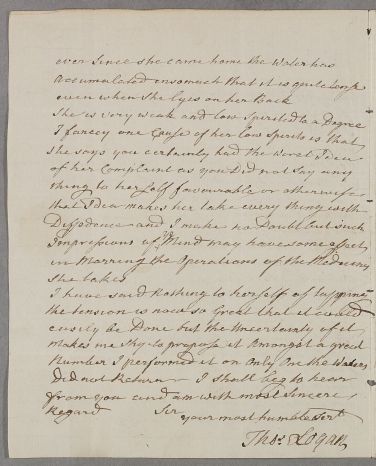 ever since she came home the Water has
accumulated insomuch that it is quite tense
even when she lyes on her Back
She is very weak and low Spirited to a Degree
I fancey one Cause of her low Spirits is that
she says you certainly had the worst Idea
of her Complaint as you Did not Say any
thing to herself favourable or otherwise
that Idea makes her take every thing with
Diffidence and I make no Doubt but such
Impressions of Mind may have some effect
in Marring the Operations of the Medicin
she takes
I have said Nothing to herself of tapping
the tension is now so Great that it could
easily be Done but the Uncertainty of it
makes me Shy to propose it Amongst a great
Number I performed it on Only One the Water
Did not Return — I shall beg to hear
from you and am with most Sincere
Regard Sir
your most humble Sert
Thos. Logan